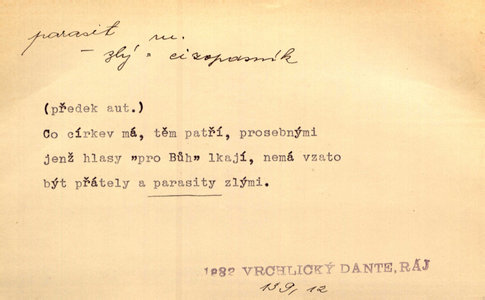 parasit m.
– zlý = cizopasník
(předek aut.)
Co církev má, těm patří, prosebnými
jenž hlasy „pro Bůh” lkají, nemá vzato
být přátely a parasity zlými.
1882 VRCHLICKÝ DANTE, RÁJ
139, 12